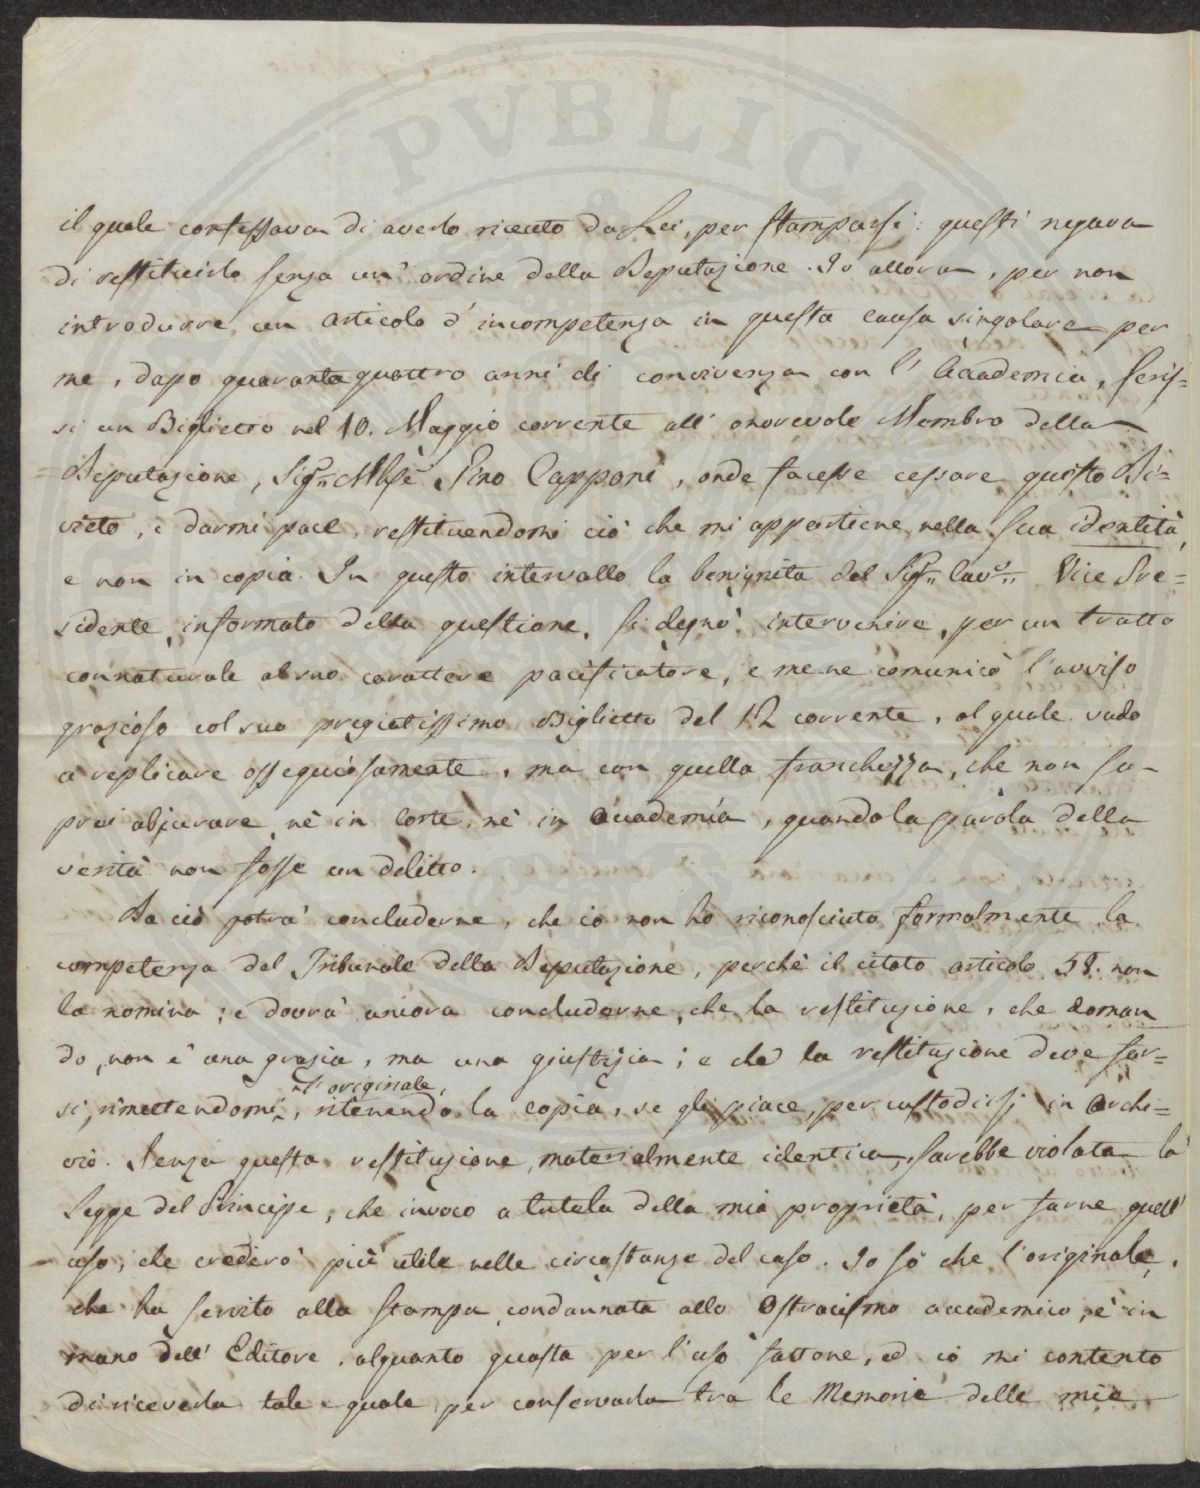 PVBLICA
il quale confessava di averlo riceuto da Lei, per stamparsi: questi negava
di restituirlo senza un' ordine della Deputazione. Io allora, per non
introdurre un articolo d' incompetenza in questa causa singolare per
me, dopo quaranta quattro anni di convivenza con l' Accademia, scris-
si un Biglietto nel 10. Maggio corrente all' onorevole Membro della
Deputazione, Sig.r M.se Gino Capponi, onde facesse cessare questo Di=
vieto, e darmi pace, restituendomi ciò che mi appartiene nella sua identità,
e non in copia. In questo intervallo la benignità del Sig.r Cav.r Vice Pre=
sidente, informato della questione, si degnò intervenire, per un tratto
connaturale al suo carattere pacificatore, e me ne comunicò l'avviso
grazioso col suo pregiatissimo Biglietto del 12 corrente, al quale vado
a replicare ossequiosamente, ma con quella franchezza, che non sa-
prei abjurare nè in Corte, nè in Accademia, quando la parola della
verità non fosse un delitto.
Da ciò potrà concluderne, che io non ho riconosciuta formalmente la
competenza del Tribunale della Deputazione, perchè il citato articolo 58. non
la nomina; e dovrà ancora concluderne, che la restituzione, che doman
do, non è una grazia, ma una giustizia; e che la restituzione deve far=
si, rimettendomi l'originale, ritenendo la copia, se gli piace, per custodirsi in Archi=
vio. Senza questa restituzione, materialmente identica, sarebbe violata la
Legge del Principe, che invoco a tutela della mia proprietà, per farne quell'
uso, che crederò più utile nelle circostanze del caso. Io so che l'originale,
che ha servito alla stampa, condannata allo Ostracismo accademico, è in
mano dell' Editore, alquanto guasta per l'uso fattone, ed io mi contento
di riceverla tale e quale, per conservarla tra le Memorie delle mie